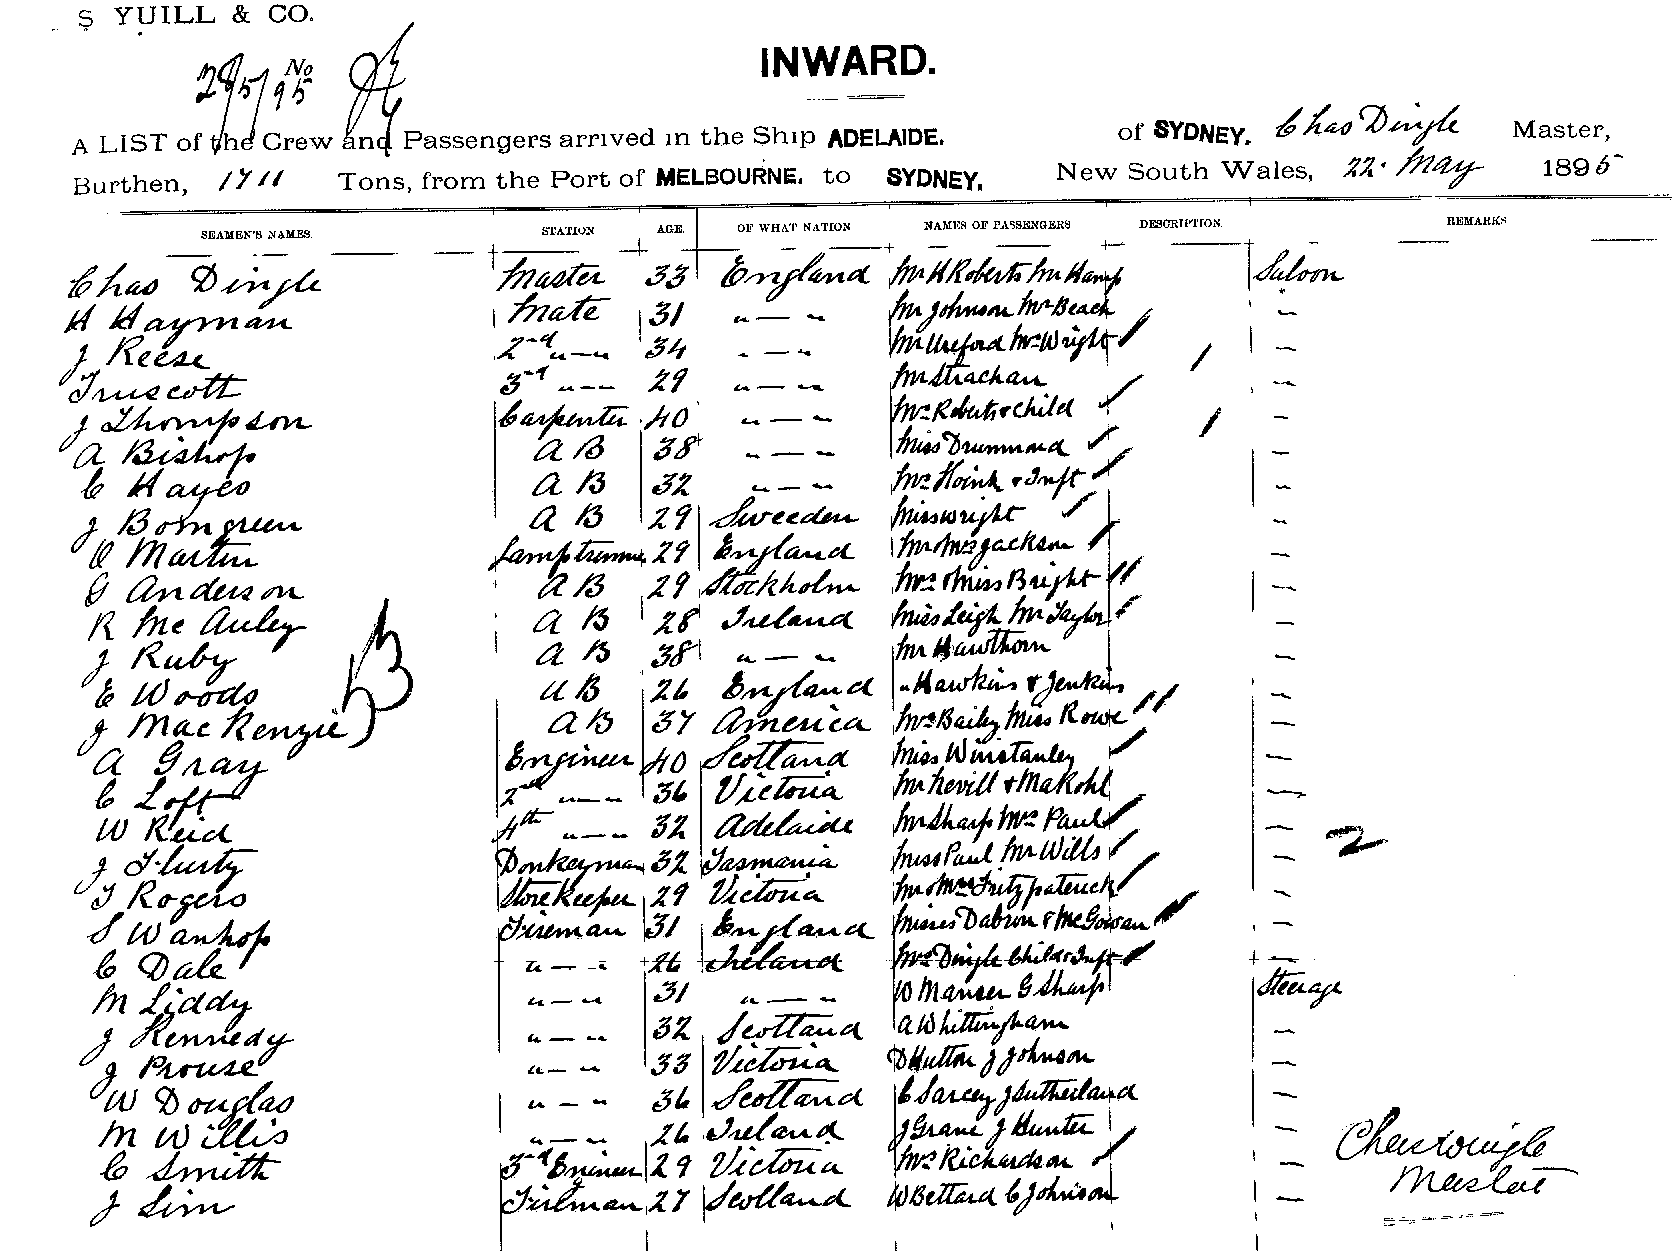 S YUILL & CO.
28/5/95 No
INWARD.
A LIST of the Crew and Passengers arrived in the Ship ADELAIDE. of SYDNEY. Chas Dingle Master,
Burthen, 1711 Tons, from the Port of MELBOURNE. to SYDNEY. New South Wales, 22. May 1895
SEAMEN'S NAMES. STATION AGE. OF WHAT NATION NAMES OF PASSENGERS DESCRIPTION. REMARKS
Chas Dingle Master 33 England Mr H Roberts Mr Hamp Saloon
H Hayman Mate 31 " — " Mr Johnson Mr Beach "
J Reese 2nd " — " 34 " — " Mr Ureford Mrs Wright —
Truscott 3rd " — " 29 " — " Mr Strachan "
J Thompson Carpenter 40 " — " Mrs Roberts & Child —
A Bishop A B 38 " — " Miss Drummond —
C Hayes A B 32 " — " Mrs & Inft "
J Borngreen A B 29 Sweeden Miss Wright "
O Martin Lamptrimmer 29 England Mr & Mrs Jackson —
G Anderson A B 29 Stockholm Mrs & Miss Bright —
R Mc Auley A B 28 Ireland Miss Leigh Mr Taylor —
J Ruby A B 38 " — " Mr Hawthorn —
E Woods A B 26 England " Hawkins & Jenkins —
J Mac Kenzie A B 37 America Mrs Bailey Miss Rowe —
A Gray Engineer 40 Scotland Miss Winstanley —
C Loft 2nd " — " 36 Victoria Mr Nevill & Makohl —
W Reid 4th " — " 32 Adelaide Mr Sharp Mrs Paul — 2
J Flusty Donkeyman 32 Tasmania Miss Paul Mr Wills —
T Rogers Storekeeper 29 Victoria Mr & Mrs Fritzpaterick —
S Wanhop Fireman 31 England Misses Dabron & McGowan —
C Dale " — " 26 Ireland Mrs Dingle Child & Inft —
M Liddy " — " 31 " — " W Manser G Sharp Steerage
J Kennedy " — " 32 Scotland A Whittingham —
J Prouse " — " 33 Victoria D Hutton J Johnson —
W Douglas " — " 36 Scotland C Sarcey J Sutherland —
M Willis " — " 26 Ireland J Grane J Hunter —
C Smith 3rd Enineer 29 Victoria Mrs Richardson —
J Sim Fireman 27 Scotland W Bettard C Johnson —
Chas Dingle
Master